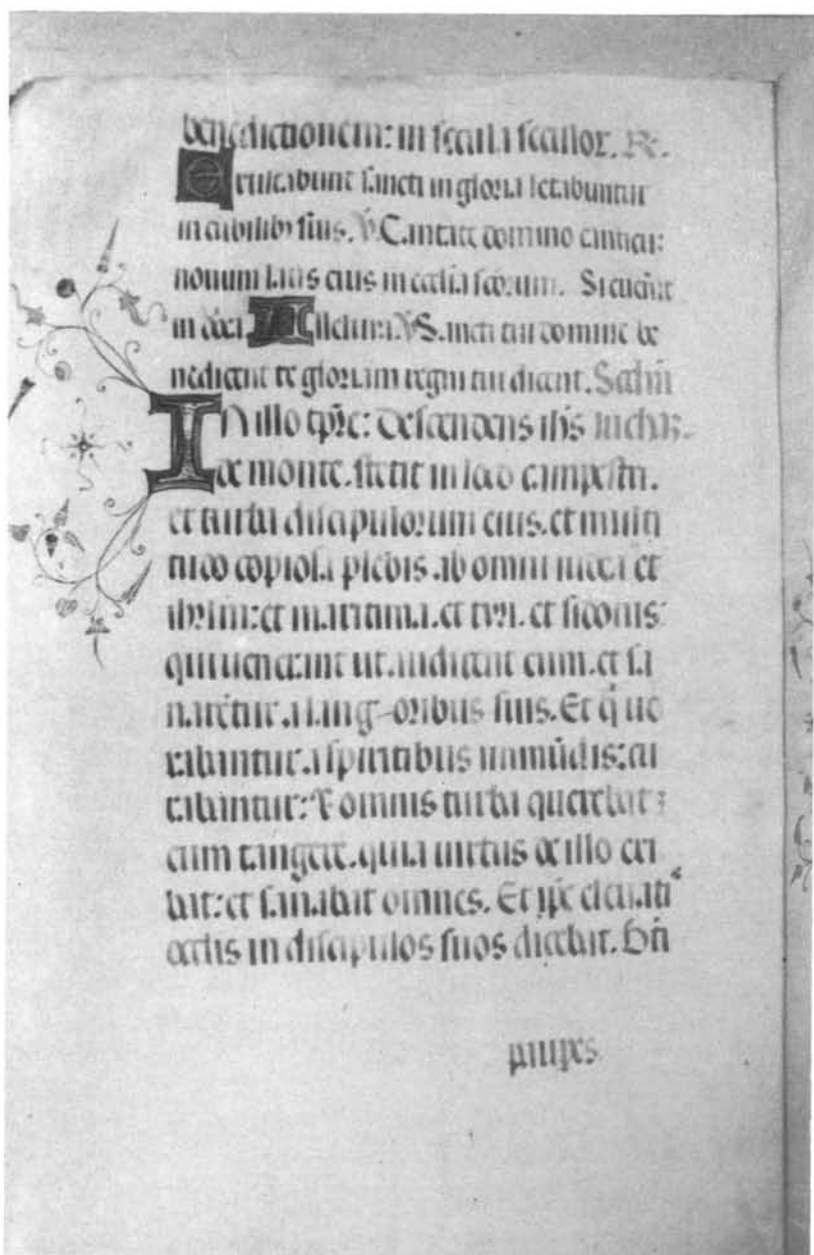 benedictionem: in secula seculor. R.
Exultabunt sancti in gloria letabuntur
in cubilib; suis. V Cantate domino canticu:
nouum laus eius in eccl'ia scorum. Sicut erat
Alleluia. V Sancti tui domine be
nedicent te gloriam regni tui dicent. Secdm
In illo tp̄re: Descendens ihs lucham.
de monte. stetit in loco campestri.
et turba discipulorum eius. et multi
tudo copiosa plebis ab omni iudea et
ihrlm: et maritima. et tyri. et sidonis:
qui uenerant ut audirent eum. et sa
narētur a languoribus suis. Et q̄ ue
xabantur a spiritibus inmūdis: cu
rabantur: & omnis turba querebat
eum tangere. quia uirtus de illo exi
bat: et sanabat omnes. Et ip̄e eleuatis
oculis in discipulos suos dicebat. Bn̄
pauperes